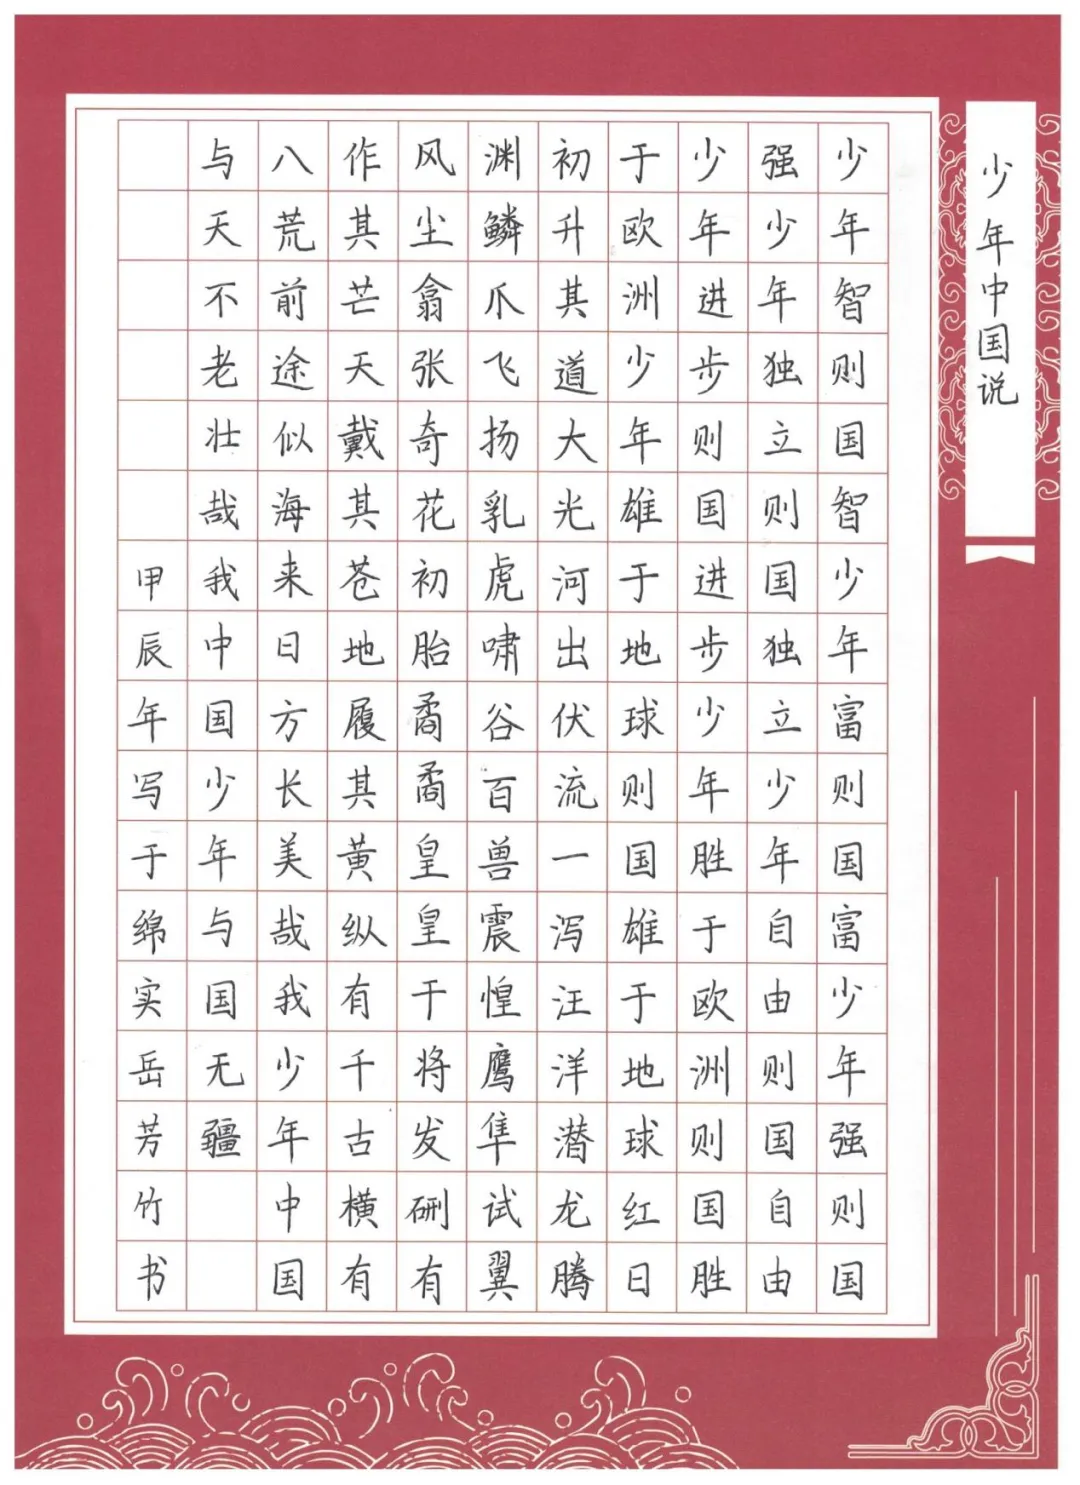 少年中国说
少年智则国智少年富则国富少年强则国
强少年独立则国独立少年自由则国自由
少年进步则国进步少年胜于欧洲则国胜
于欧洲少年雄于地球则国雄于地球红日
初升其道大光河出伏流一泻汪洋潜龙腾
渊鳞爪飞扬乳虎啸谷百兽震惶鹰隼试翼
风尘翕张奇花初胎矞矞皇皇干将发硎有
作其芒天戴其苍地履其黄纵有千古横有
八荒前途似海来日方长美哉我少年中国
与天不老壮哉我中国少年与国无疆
甲辰年写于绵实岳芳竹书